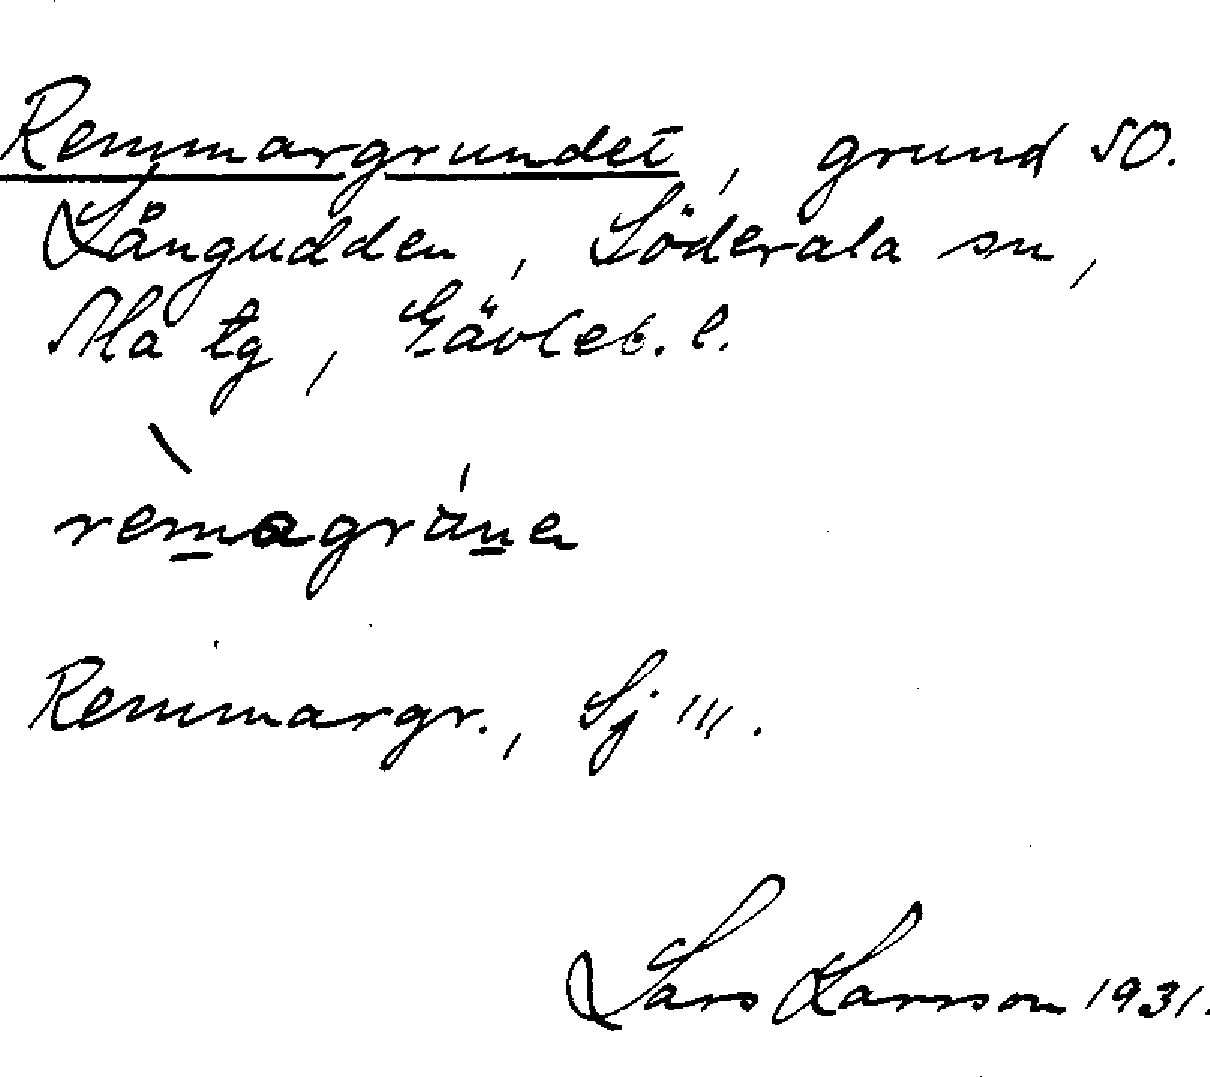 Remmargrundet, grund SO.
Långudden, Söderala sn,
Ala tg, Gävleb. l.
remagränen
Remmargr., Sj III.
Lars Larsson 1931.